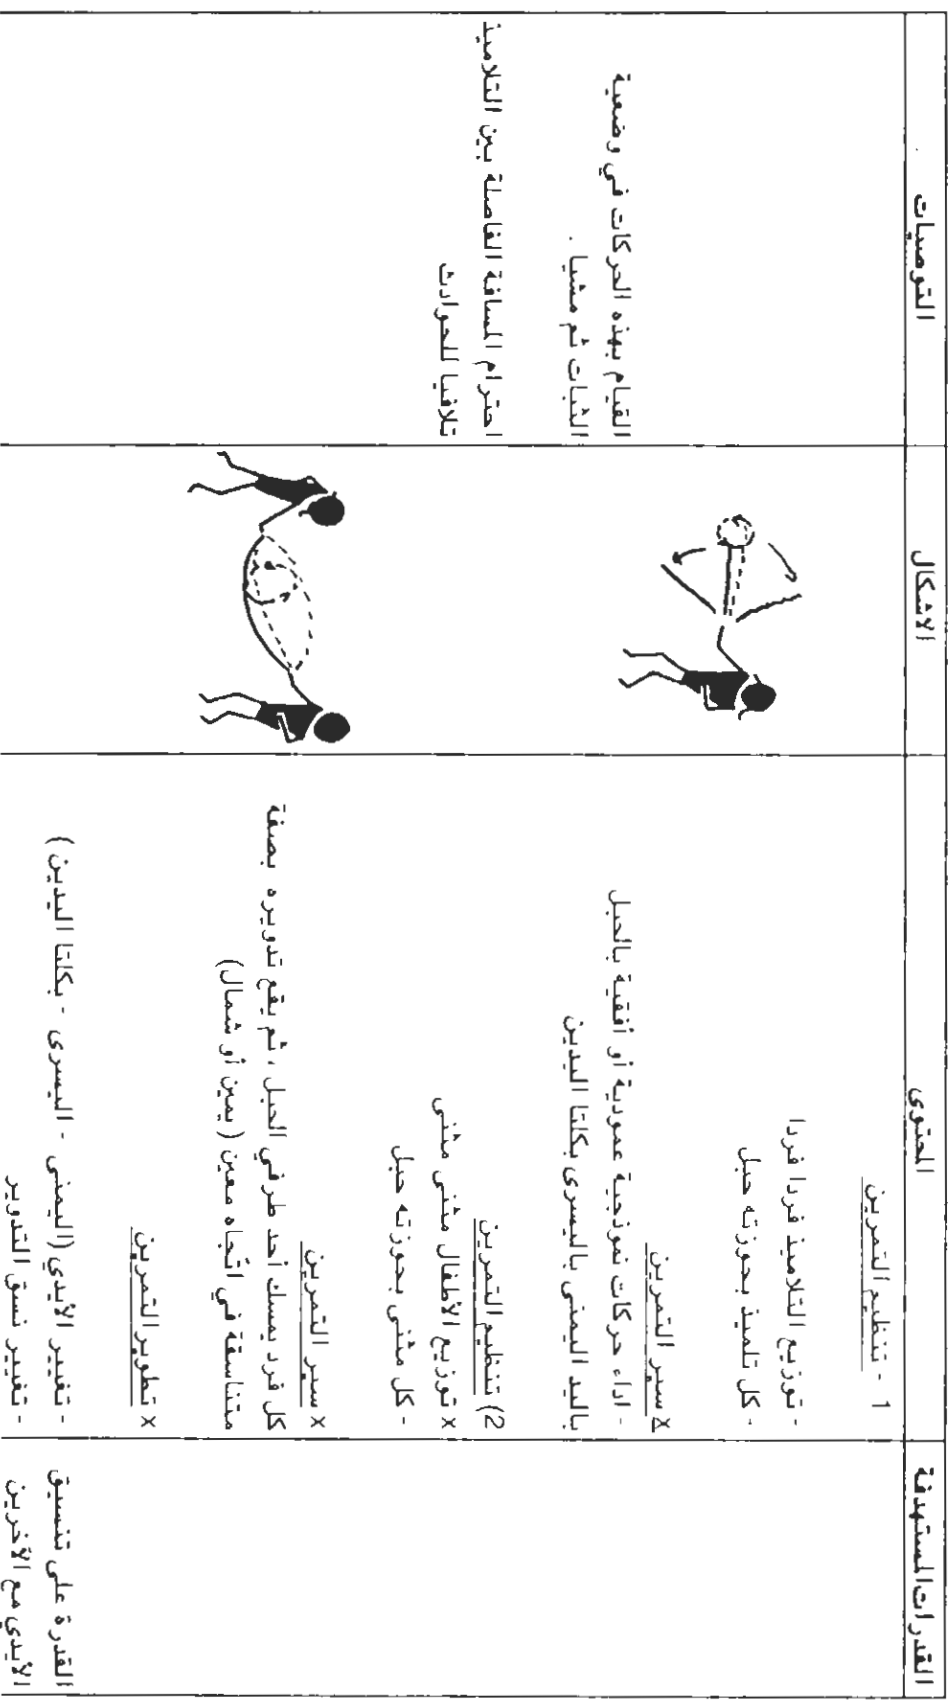 القدرات المستهدفة
المحتوى
الاشكال
التوصيات
1 - تنظيم التمرين
- توزيع التلاميذ فردا فردا
- كل تلميذ بحوزته حبل
x سير التمرين
- اداء حركات نموذجية عمودية أو أفقية بالحبل
باليد اليمنى باليسرى بكلتا اليدين
2) تنظيم التمرين
x توزيع الأطفال مثنى مثنى
- كل مثنى بحوزته حبل
x سير التمرين
كل فرد يمسك أحد طرفي الحبل ، ثم يقع تدويره بصفة
متناسقة في اتجاه معين ( يمين أو شمال)
x تطوير التمرين
- تغيير الأيدي (اليمنى - اليسرى - بكلتا اليدين )
- تغيير نسق التدوير
القيام بهذه الحركات في وضعية
الثبات ثم مشيا .
احترام المسافة الفاصلة بين التلاميذ
تلافيا للحوادث
القدرة على تنسيق
الأيدي مع الآخرين